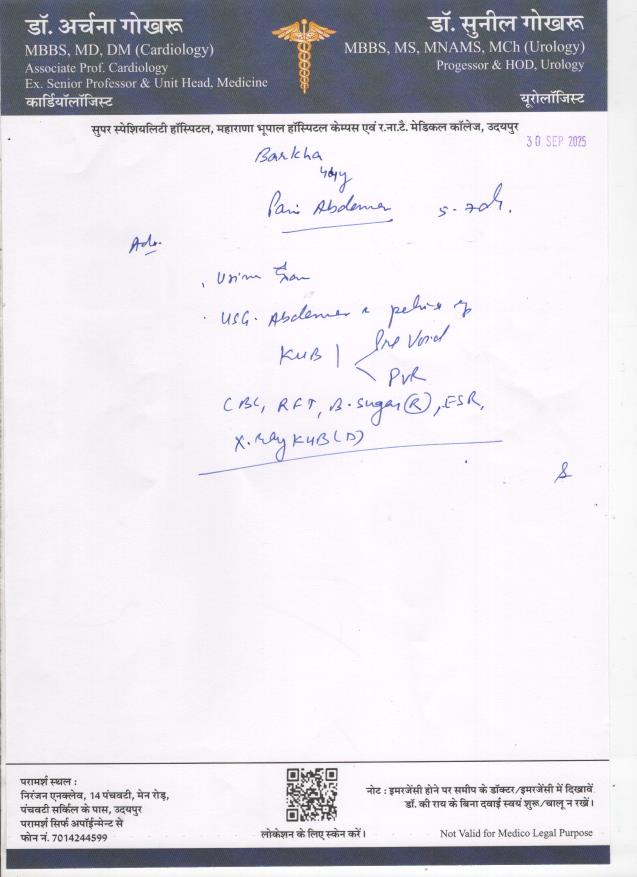 डॉ. अर्चना गोखरू
MBBS, MD, DM (Cardiology)
Associate Prof. Cardiology
Ex. Senior Professor & Unit Head, Medicine
कार्डियॉलॉजिस्ट
डॉ. सुनील गोखरू
MBBS, MS, MNAMS, MCh (Urology)
Progessor & HOD, Urology
यूरोलॉजिस्ट
सुपर स्पेशियलिटी हॉस्पिटल, महाराणा भूपाल हॉस्पिटल केम्पस एवं र.ना.टै. मेडिकल कॉलेज, उदयपुर
30 SEP 2025
Barkha
Pain Abdomen
Adv.
Urine
USG. Abdomen & pelvis
KUB Pre Void
PVR
CBC, RFT, B. Sugar (R), ESR,
X. Ray KUB (D)
परामर्श स्थल :
निरंजन एनक्लेव, 14 पंचवटी, मेन रोड़,
पंचवटी सर्किल के पास, उदयपुर
परामर्श सिर्फ अपॉईन्मेन्ट से
फोन नं. 7014244599
लोकेशन के लिए स्केन करें।
नोट : इमरजेंसी होने पर समीप के डॉक्टर/इमरजेंसी में दिखावें
डॉ. की राय के बिना दवाई स्वयं शुरू/चालू न रखें।
Not Valid for Medico Legal Purpose